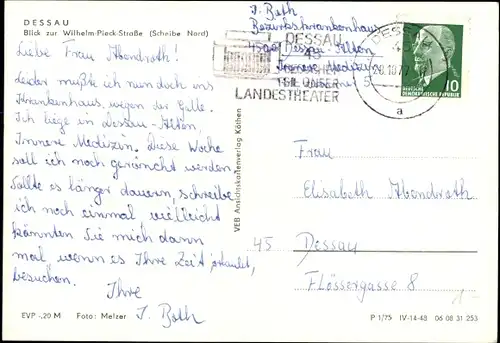 DESSAU
Blick zur Wilhelm-Pieck-Straße (Scheibe Nord)
Liebe Frau Abendroth!
Leider mußte ich nun doch ins
Krankenhaus wegen der Galle.
Ich liege in Dessau-Alten,
Innere Medizin. Diese Woche
soll ich noch geröntgt werden
Sollte es länger dauern, schreibe
ich noch einmal vielleicht
könnten Sie mich dann
mal wenn es Ihre Zeit erlaubt,
besuchen.
Ihre
I. Both
EVP -,20 M Foto: Melzer
VEB Ansichtskartenverlag Köthen
I. Both
Bezirkskrankenhaus
4500 Dessau Alten
Innere Medizin
DESSAU
45
BESUCHEN
SIE UNSER
LANDESTHEATER
DESSAU
45
a
DEUTSCHE
DEMOKRATISCHE REPUBLIK
10
Frau
Elisabeth Abendroth
45 Dessau
Flössergasse 8
P 1/75 IV-14-48 06 08 31 253